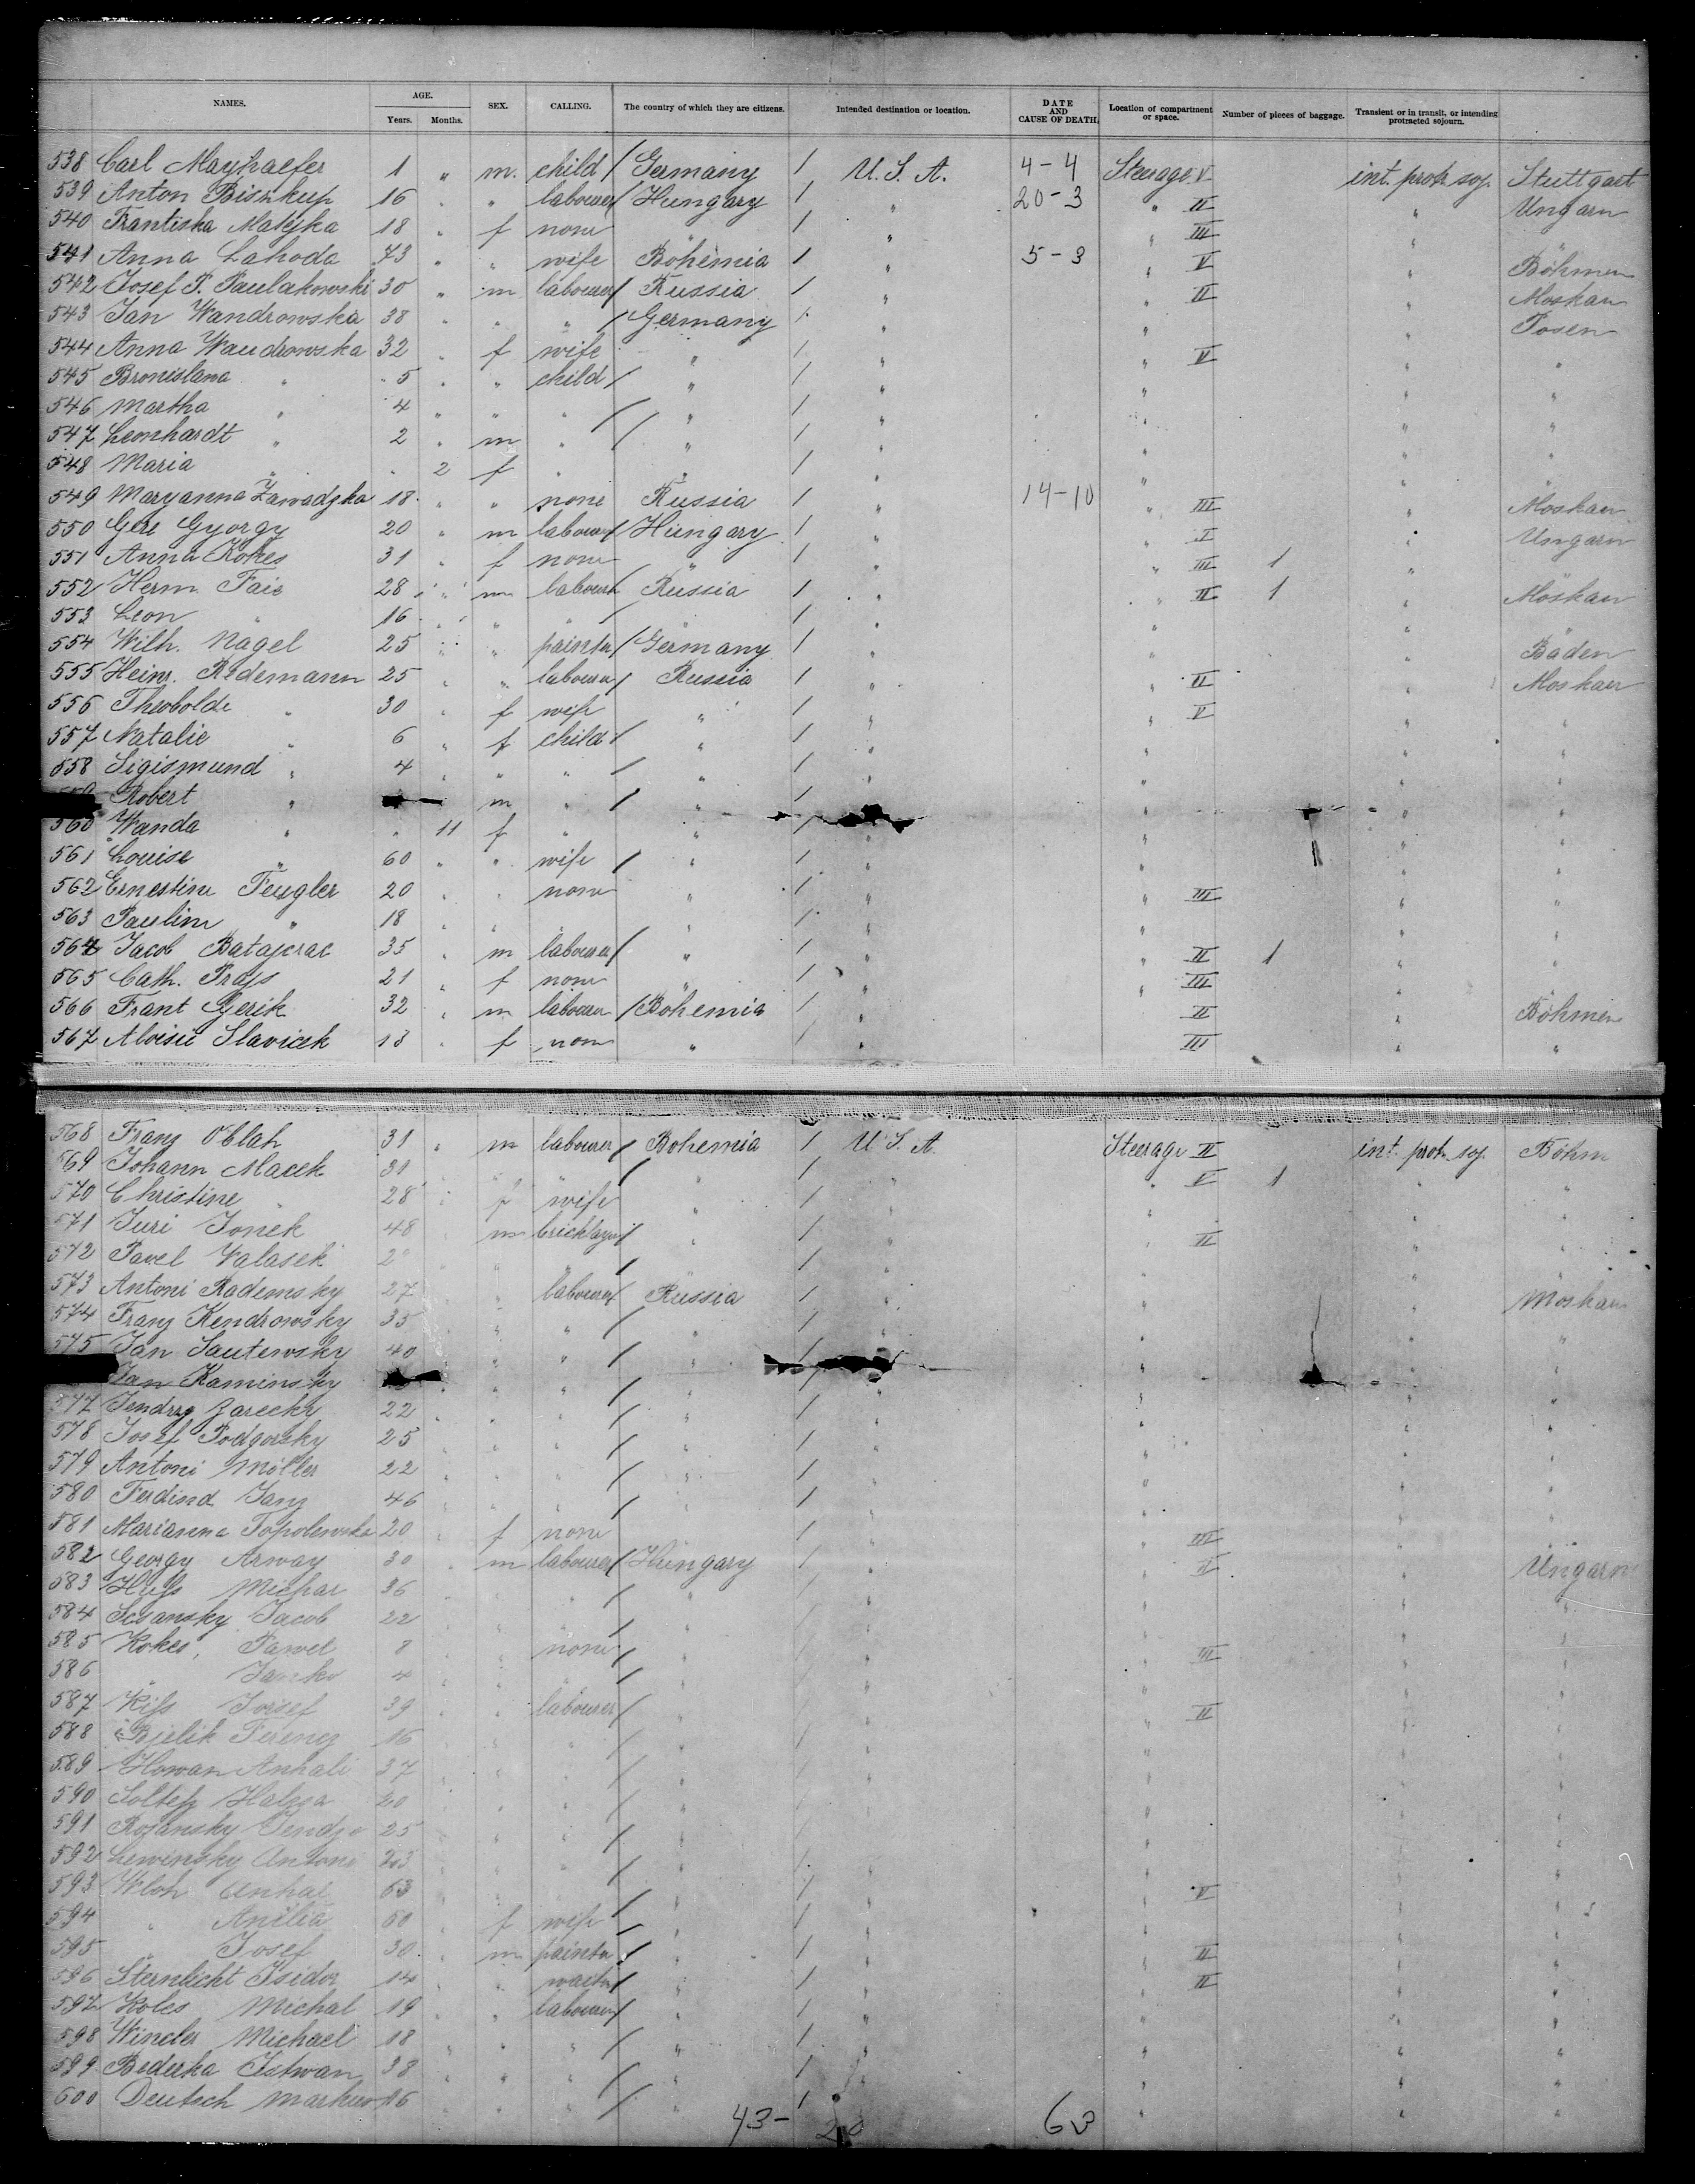 NAMES. AGE. SEX. CALLING. The country of which they are citizens. Intended destination or location. DATE AND CAUSE OF DEATH. Location of compartment or space. Number of pieces of baggage. Transient or in transit, or intending protracted sojourn.
Years. Months.
538 Carl Mayhaefer 1 " m. child / Germany / U. S. A. 4-4 Steerage V int. protr. soj. Stuttgart
539 Anton Bishkup 16 " " labourer / Hungary / " 20-3 " II " Ungarn
540 Frantiska Matejka 18 " f none " / " " III "
541 Anna Lahoda 73 " " wife Bohemia / " 5-3 " V " Böhmen
542 Josef P. Paulakowski 30 " m labourer / Russia / " " II " Moskau
543 Jan Wandrowska 38 " " " / Germany / " " " Posen
544 Anna Wandrowska 32 " f wife " / " " V " "
545 Bronislana " 5 " " child / " / " " " "
546 Martha " 4 " " " / " / " " " "
547 Leonhardt " 2 " m " / " / " " " "
548 Maria " " 2 f " " / " " " "
549 Maryanna Zawadzka 18 " " none Russia / " 14-10 " III " Moskau
550 Gere Gyorgy 20 " m labourer / Hungary / " " II " Ungarn
551 Anna Kokes 31 " f none " / " " III 1 "
552 Herm. Fais 28 " m labourer / Russia / " " II 1 " Moskau
553 Leon " 16 " " " / " / " " " "
554 Wilh. Nagel 25 " " painter / Germany / " " " Baden
555 Heinr. Redemann 25 " " labourer / Russia / " " II " Moskau
556 Theobolde " 30 " f wife " / " " V " "
557 Natalie " 6 " f child / " / " " " "
558 Sigismund " 4 " " " / " / " " " "
Robert " m " / " / " " "
560 Wanda " " 11 f " " / " " " "
561 Louise " 60 " " wife / " / " " " "
562 Ernestine Feugler 20 " " none " / " " III " "
563 Pauline " 18 " " " " / " " " "
564 Jacob 35 " m labourer / " / " " II 1 " "
565 Cath. 21 " f none " / " " III " "
566 Frant Gerik 32 " m labourer / Bohemia / " II " Böhmen
567 Aloisie Slavicek 18 " f none " / " III " "
568 Franz Oblah 31 " m labourer / Bohemia / U. S. A. Steerage II int. protr. soj. Böhm
569 Johann Macek 31 " " " / " / " " V 1 " "
570 Christine " 28 " f wife " / " " " "
571 Juri Jonek 48 m bricklayer / " / " " II " "
572 Pavel Valasek " " " / " / " " " "
573 Antoni Rademsky 27 " " labourer / Russia / " " " Moskau
574 Franz Kendrowsky 35 " " " / " / " " " "
575 Jan Sautewsky 40 " " " / " / " " "
Jan Kaminsky " " " / " / " " " "
577 Jendrzy Zarecky 22 " " " / " / " " " "
578 Josef Podgorsky 25 " " " / " / " " " "
579 Antoni Möller 22 " " " / " / " " " "
580 Ferdind Janz 46 " " " / " / " " " "
581 Marianna Topolewska 20 " f none " / " " III " "
582 Georgy Arway 30 " m labourer / Hungary / " " II " Ungarn
583 Huss Michar 36 " " " / " / " " " "
584 Scsansky Jacob 22 " " " / " / " " " "
585 Kokes, Pawel 8 " " none / " / " " III " "
586 " Janko 4 " " " / " / " " " "
587 Kiss Jozsef 39 " " labourer / " / " " II " "
588 Bjelik Ferencz 16 " " " / " / " " " "
589 Howan 37 " " " / " / " " " "
590 20 " " " / " / " " " "
591 Rozansky 25 " " " / " / " " " "
592 Lewinsky Antoni " " " / " / " " " "
593 Wloh 63 " " " / " / " " V " "
594 " 60 " f wife / " / " " " "
595 " Josef 30 " m painter / " / " " II " "
596 Sternlicht Isidor 14 " " waiter / " / " " II " "
597 Koles Michal 19 " " labourer / " / " " " "
598 Wincler Michael 18 " " " / " / " " " "
599 Bederka Istwan 38 " " " / " / " " " "
600 Deutsch Markus 16 " " " / " / " " " "
43- 20 63